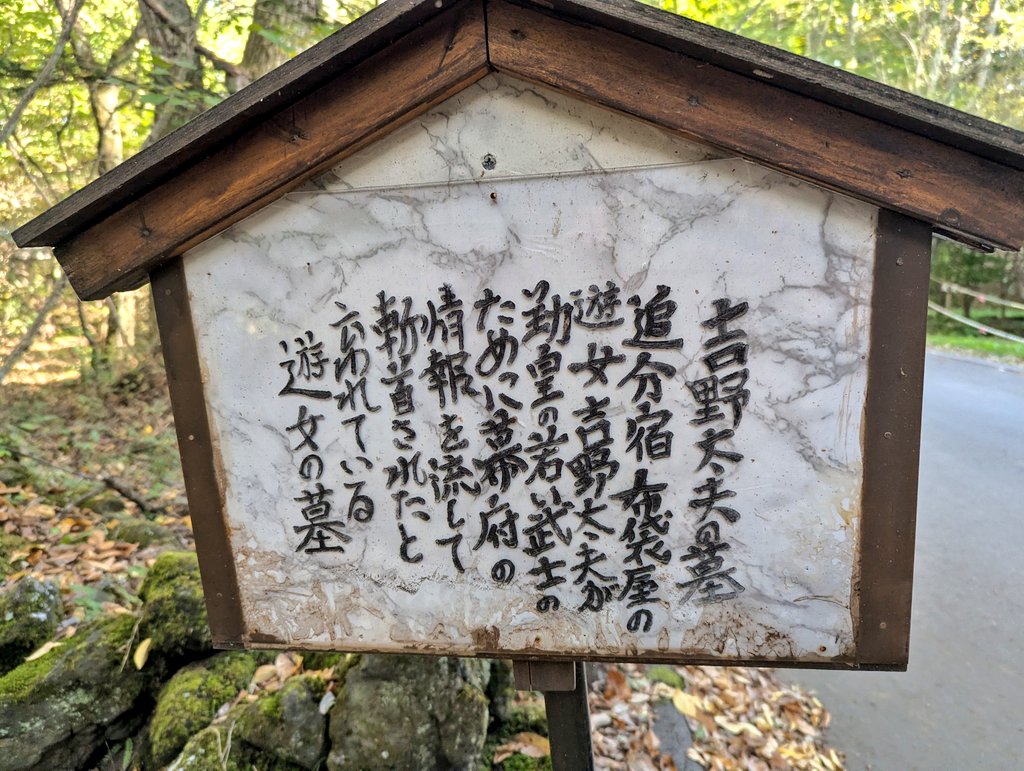 吉野太夫の墓
追分宿 布袋屋の
遊女吉野太夫が
勤皇の若い武士の
ために幕府の
情報を流して
斬首されたと
云われている
遊女の墓